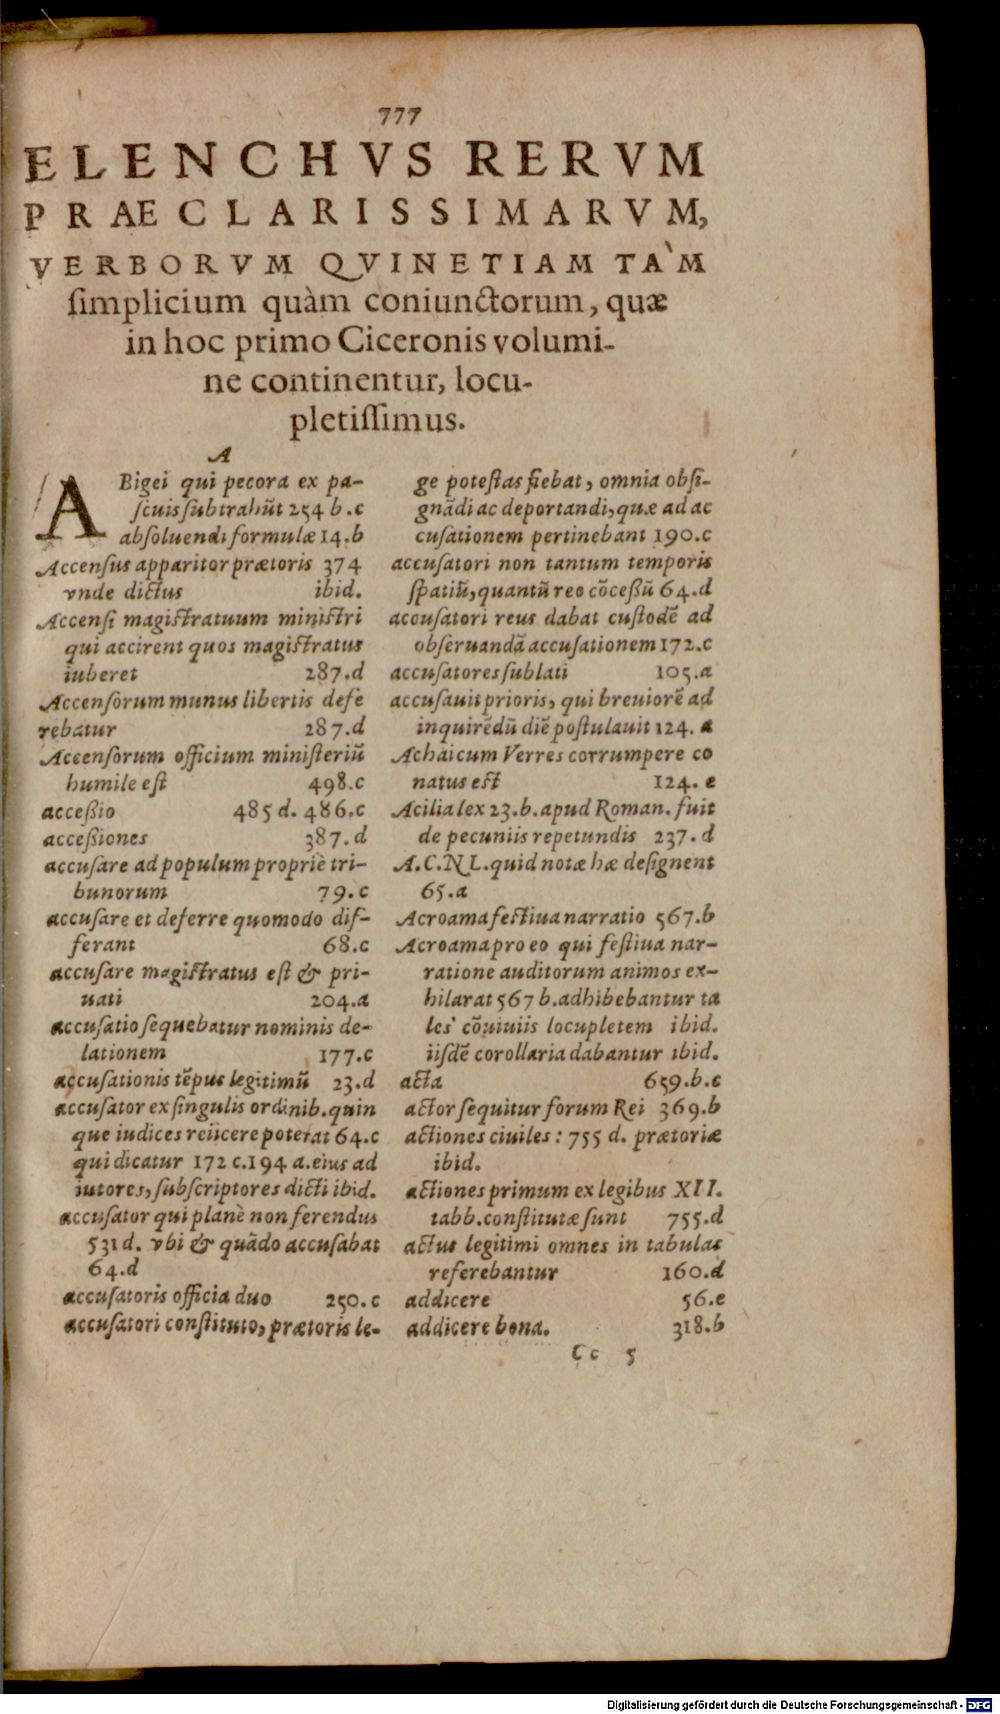 777
ELENCHVS RERVM
PRAECLARISSIMARVM,
VERBORVM QVINETIAM TA`M
ſimplicium quàm coniunctorum, quæ
in hoc primo Ciceronis volumi-
ne continentur, locu-
pletiſſimus.
A
ABigei qui pecora ex pa-
ſcuis ſubtrahūt 254 b.c
abſoluendi formulæ 14.b
Accenſus apparitor prætoris 374
vnde dictus ibid.
Accenſi magiſtratuum miniſtri
qui accirent quos magiſtratus
iuberet 287.d
Accenſorum munus libertis defe
rebatur 287.d
Accenſorum officium miniſteriū
humile eſt 498.c
acceßio 485 d. 486.c
acceßiones 387.d
accuſare ad populum propriè tri-
bunorum 79.c
accuſare et deferre quomodo dif-
ferant 68.c
accuſare magiſtratus eſt & pri-
uati 204.a
accuſatio ſequebatur nominis de-
lationem 177.c
accuſationis tēpus legitimū 23.d
accuſator ex ſingulis ordinib. quin
que iudices reiicere poterat 64.c
qui dicatur 172 c.194 a. eius ad
iutores, ſubſcriptores dicti ibid.
accuſator qui planè non ferendus
531 d. vbi & quādo accuſabat
64.d
accuſatoris officia duo 250.c
accuſatori conſtituto, prætoris le-
ge poteſtas fiebat, omnia obſi-
gnādi ac deportandi, quæ ad ac
cuſationem pertinebant 190.c
accuſatori non tantum temporis
ſpatiū, quantū reo cōceßū 64.d
accuſatori reus dabat cuſtodē ad
obſeruandā accuſationem 172.c
accuſatores ſublati 105.a
accuſauit prioris, qui breuiorē ad
inquirēdū diē poſtulauit 124. a
Achaicum Verres corrumpere co
natus eſt 124. e
Acilia lex 23.b. apud Roman. fuit
de pecuniis repetundis 237.d
A.C.N L. quid notæ hæ deſignent
65.a
Acroama feſtiua narratio 567.b
Acroama pro eo qui feſtiua nar-
ratione auditorum animos ex-
hilarat 567 b. adhibebantur ta
les cōuiuiis locupletem ibid.
iiſdē corollaria dabantur ibid.
acta 659.b.c
actor ſequitur forum Rei 369.b
actiones ciuiles: 755 d. prætoriæ
ibid.
actiones primum ex legibus XII.
tabb. conſtitutæ ſunt 755.d
actus legitimi omnes in tabulas
referebantur 160.d
addicere 56.e
addicere bona. 318.b
Cc 5
Digitalisierung gefördert durch die Deutsche Forschungsgemeinschaft - DFG